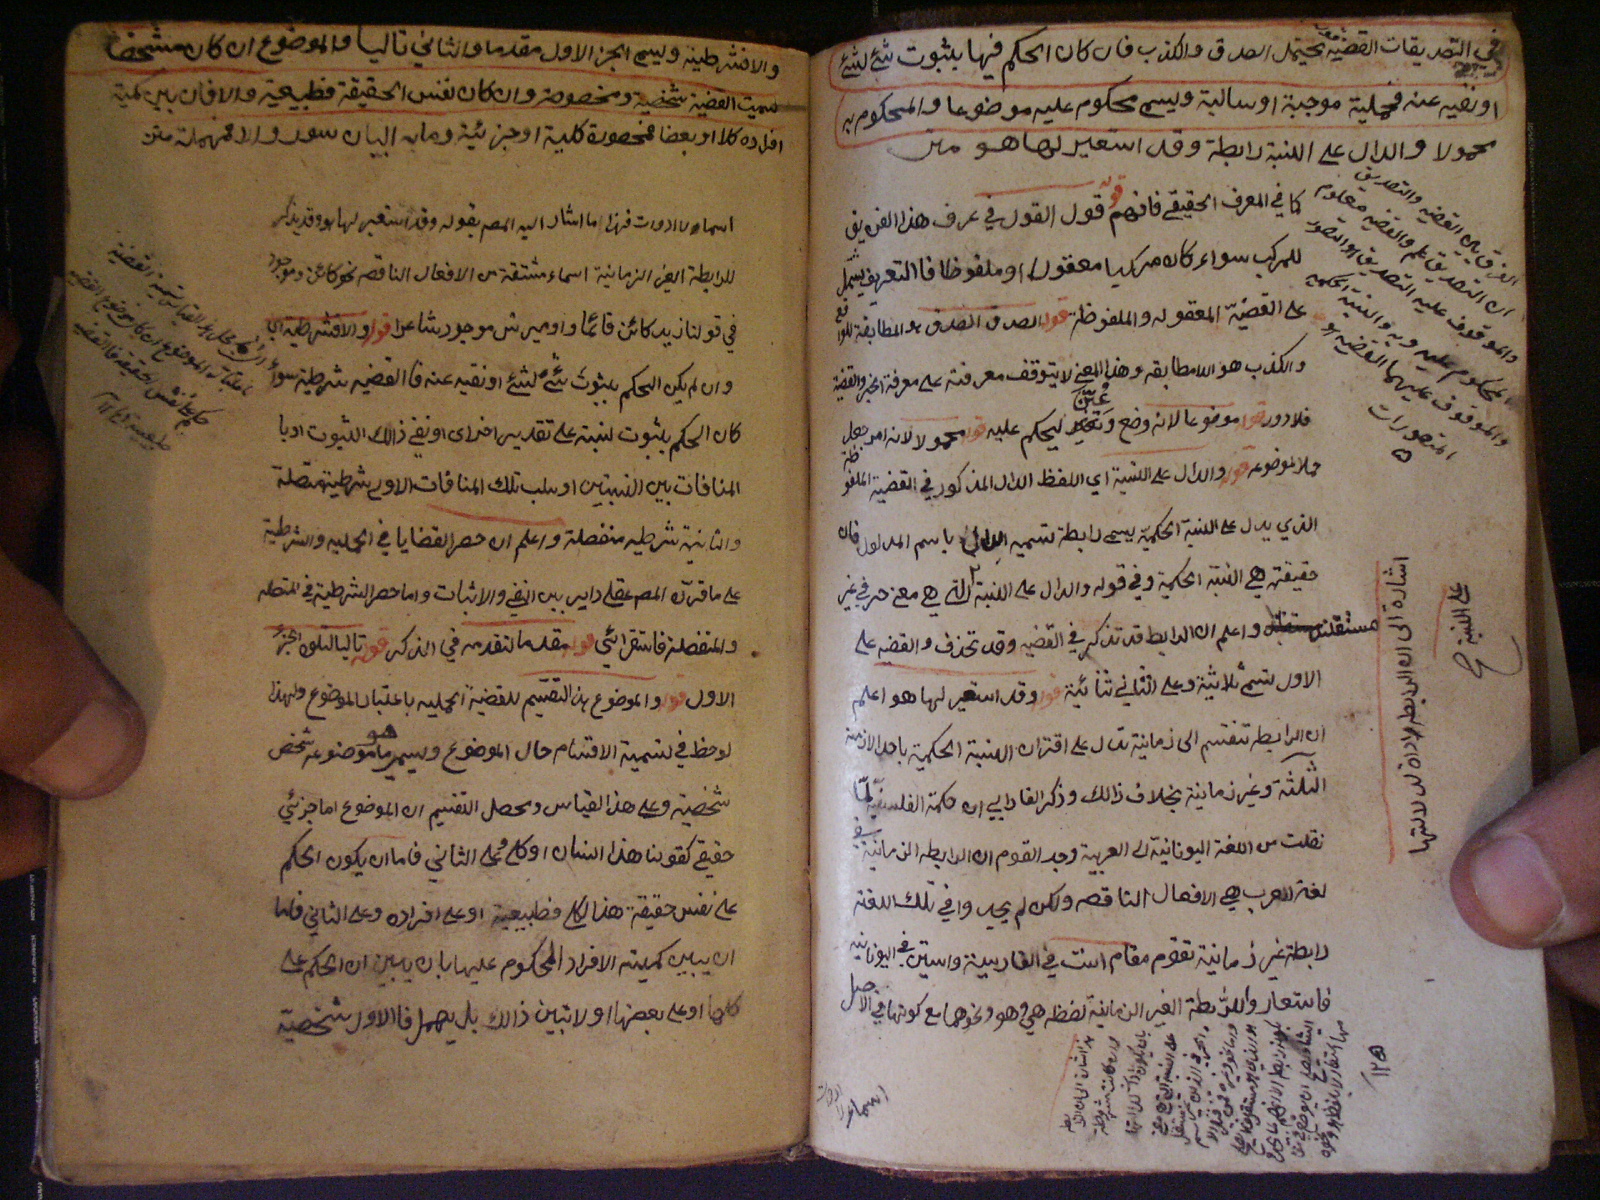 في التصديقات القضية قول يحتمل الصدق والكذب فان كان الحكم فيها بثبوت شئ لشئ
او نفيه عنه فحملية موجبة او سالبة ويسمى محكوم عليه موضوعا والمحكوم به
محمولا والدال على النسبة رابطة وقد استعير لها هو متن
كما في المعرف الحقيقي فافهم قوله قول القول في عرف هذا الفن يق
للمركب سواء كان مركبا معقولا او ملفوظا فالتعريف يشمل
على القضية المعقوله والملفوظة قوله الصدق الصدق هو المطابقة للواقع
والكذب هو اللامطابقه وهذا المعنى لا يتوقف معرفته على معرفة الخبر والقضية
فلا دور قوله موضوعا لانه وضع وعين ليحكم عليه قوله محمولا لانه امر جعل
حملا لموضوعه قوله والدال على النسبة اي اللفظ الدال المذكور في القضية الملفوظة
الذي يدل على النسبة الحكمية يسمى رابطة تسميه الدال باسم المدلول فان
حقيقته هي النسبة الحكمية وفي قوله والدال على النسبة التي هي معنى حرفي غير
مستقلة واعلم ان الرابط قد تذكر في القضيه وقد تحذف والقضيه على
الاول تسمى ثلاثية وعلى الثاني ثنائية قوله وقد استعير لها هو اعلم
ان الرابطه تنقسم الى زمانية تدل على اقتران النسبة الحكمية باحد الازمنة
الثلثة وغير زمانية بخلاف ذالك وذكر الفارابي ان حكمة الفلسفية لما
نقلت من اللغة اليونانية الى العربية وجد القوم ان الرابطه الزمانية في
لغة العرب هي الافعال الناقصه ولكن لم يجدوا في تلك اللغة
رابطة غير زمانية تقوم مقام است في الفارسية واستين في اليونانيه
فاستعاروا للرابطة الغير الزمانية لفظة هي وهو ونحوهما مع كونها في الاصل
اسماء لا ادوات
الفرق بين القضيه والتصديق
ان التصديق علم والقضيه معلوم
والموقوف عليه التصديق هو التصور
المحكوم عليه وبه والنسبة الحكمية
والموقوف عليها القضيه هو
المتصورات
اشارة الى ان الرابطة اداة لدلالتها
على النسبة
والا فشرطية ويسمى الجزء الاول مقدما والثاني تاليا والموضوع ان كان مشخصا
سميت القضية شخصية ومخصوصة وان كان نفس الحقيقة فطبيعية والا فان بين كمية
افراده كلا او بعضا فمحصورة كلية او جزئية وما به البيان سور والا فمهملة متن
اسماء لا ادوات فهذا ما اشار اليه المصـ بقوله وقد استعير لها هو وقد يذكر
للرابطة الغير الزمانية اسماء مشتقة من الافعال الناقصه نحو كائن وموجود
في قولنا زيد كائن قائما واوميرس موجود شاعرا قوله والا فشرطية اي
وان لم يكن الحكم بثبوت شئ لشئ او نفيه عنه فالقضيه شرطية سواء
كان الحكم بثبوت نسبة على تقدير اخرى او نفي ذالك الثبوت او با
المنافات بين النسبتين او سلب تلك المنافات الاولى شرطية متصلة
والثانية شرطيه منفصلة واعلم ان حصر القضايا في الحمليه والشرطية
على ما قرره المصـ عقلي داير بين النفي والاثبات واما حصر الشرطية في المتصله
والمنفصلة فاستقرائي قوله مقدما لتقدمه في الذكر قوله تاليا لتلوه الجزء
الاول قوله والموضوع هذا التقسيم للقضية الحمليه باعتبار الموضوع ولهذا
لوحظ في تسمية الاقسام حال الموضوع ويسمى ما هو موضوعه شخص
شخصية وعلى هذا القياس ومحصل التقسيم ان الموضوع اما جزئي
حقيقي كقولنا هذا انسان او كلي وعلى الثاني فاما ان يكون الحكم
على نفس حقيقة هذا الكلي فطبيعية او على افراده وعلى الثاني فاما
ان يبين كميته الافراد المحكوم عليها بان يبين ان الحكم على
كلها او على بعضها او لا تبين ذالك بل يهمل فالاول شخصية